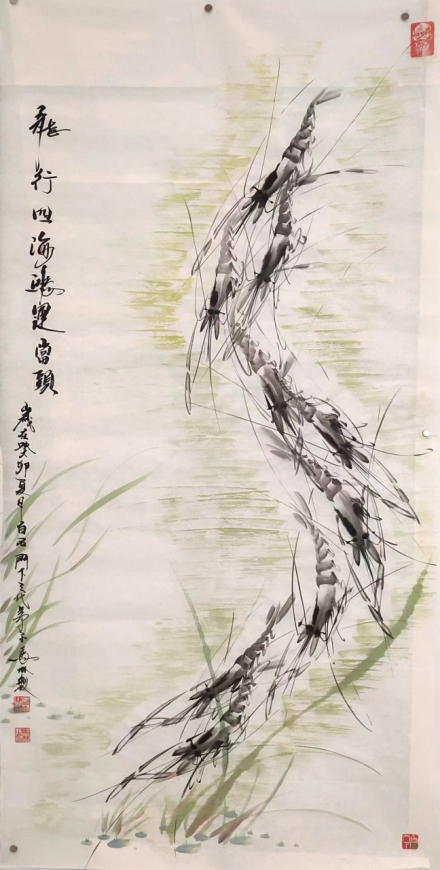 龍行四海鴻運當頭
歲在癸卯夏月白石門下三代弟子